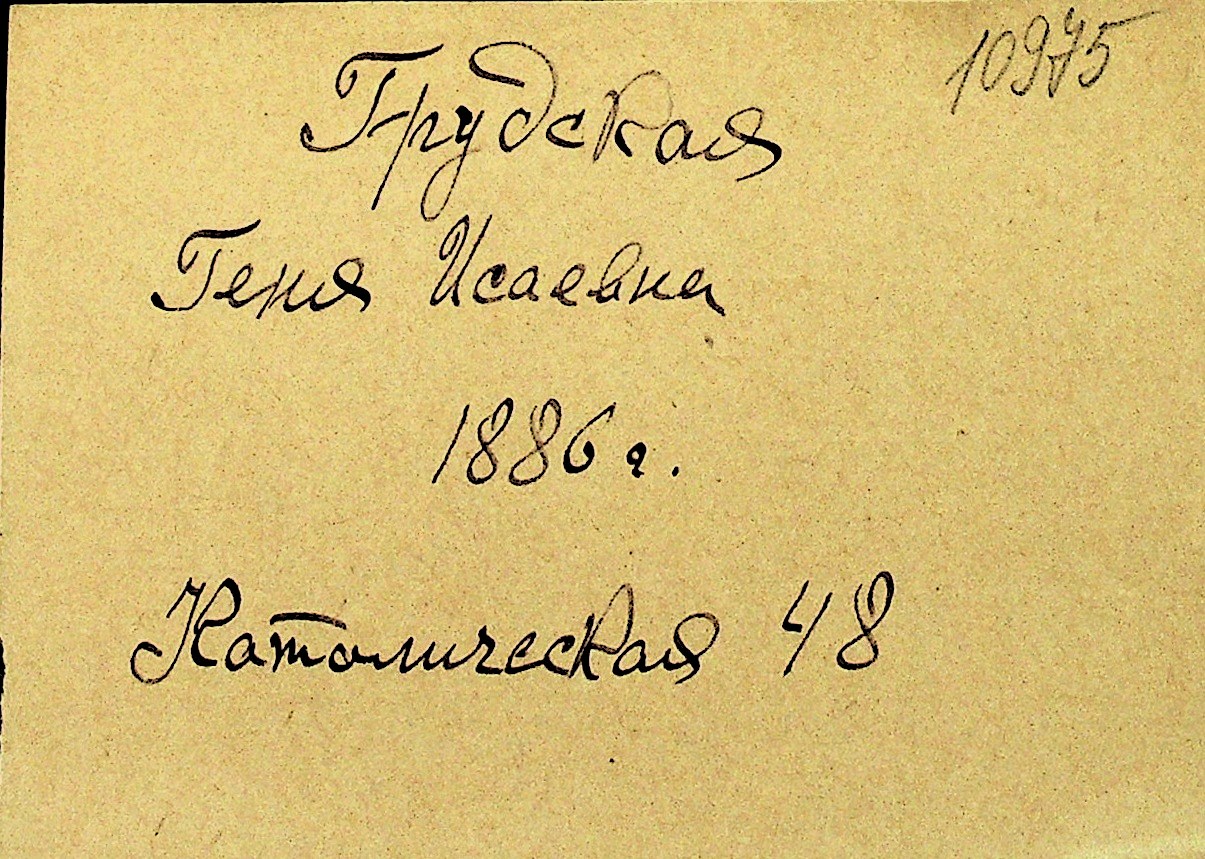 10975
Грудская
Геня Исаевна
1886 г.
Католическая 48